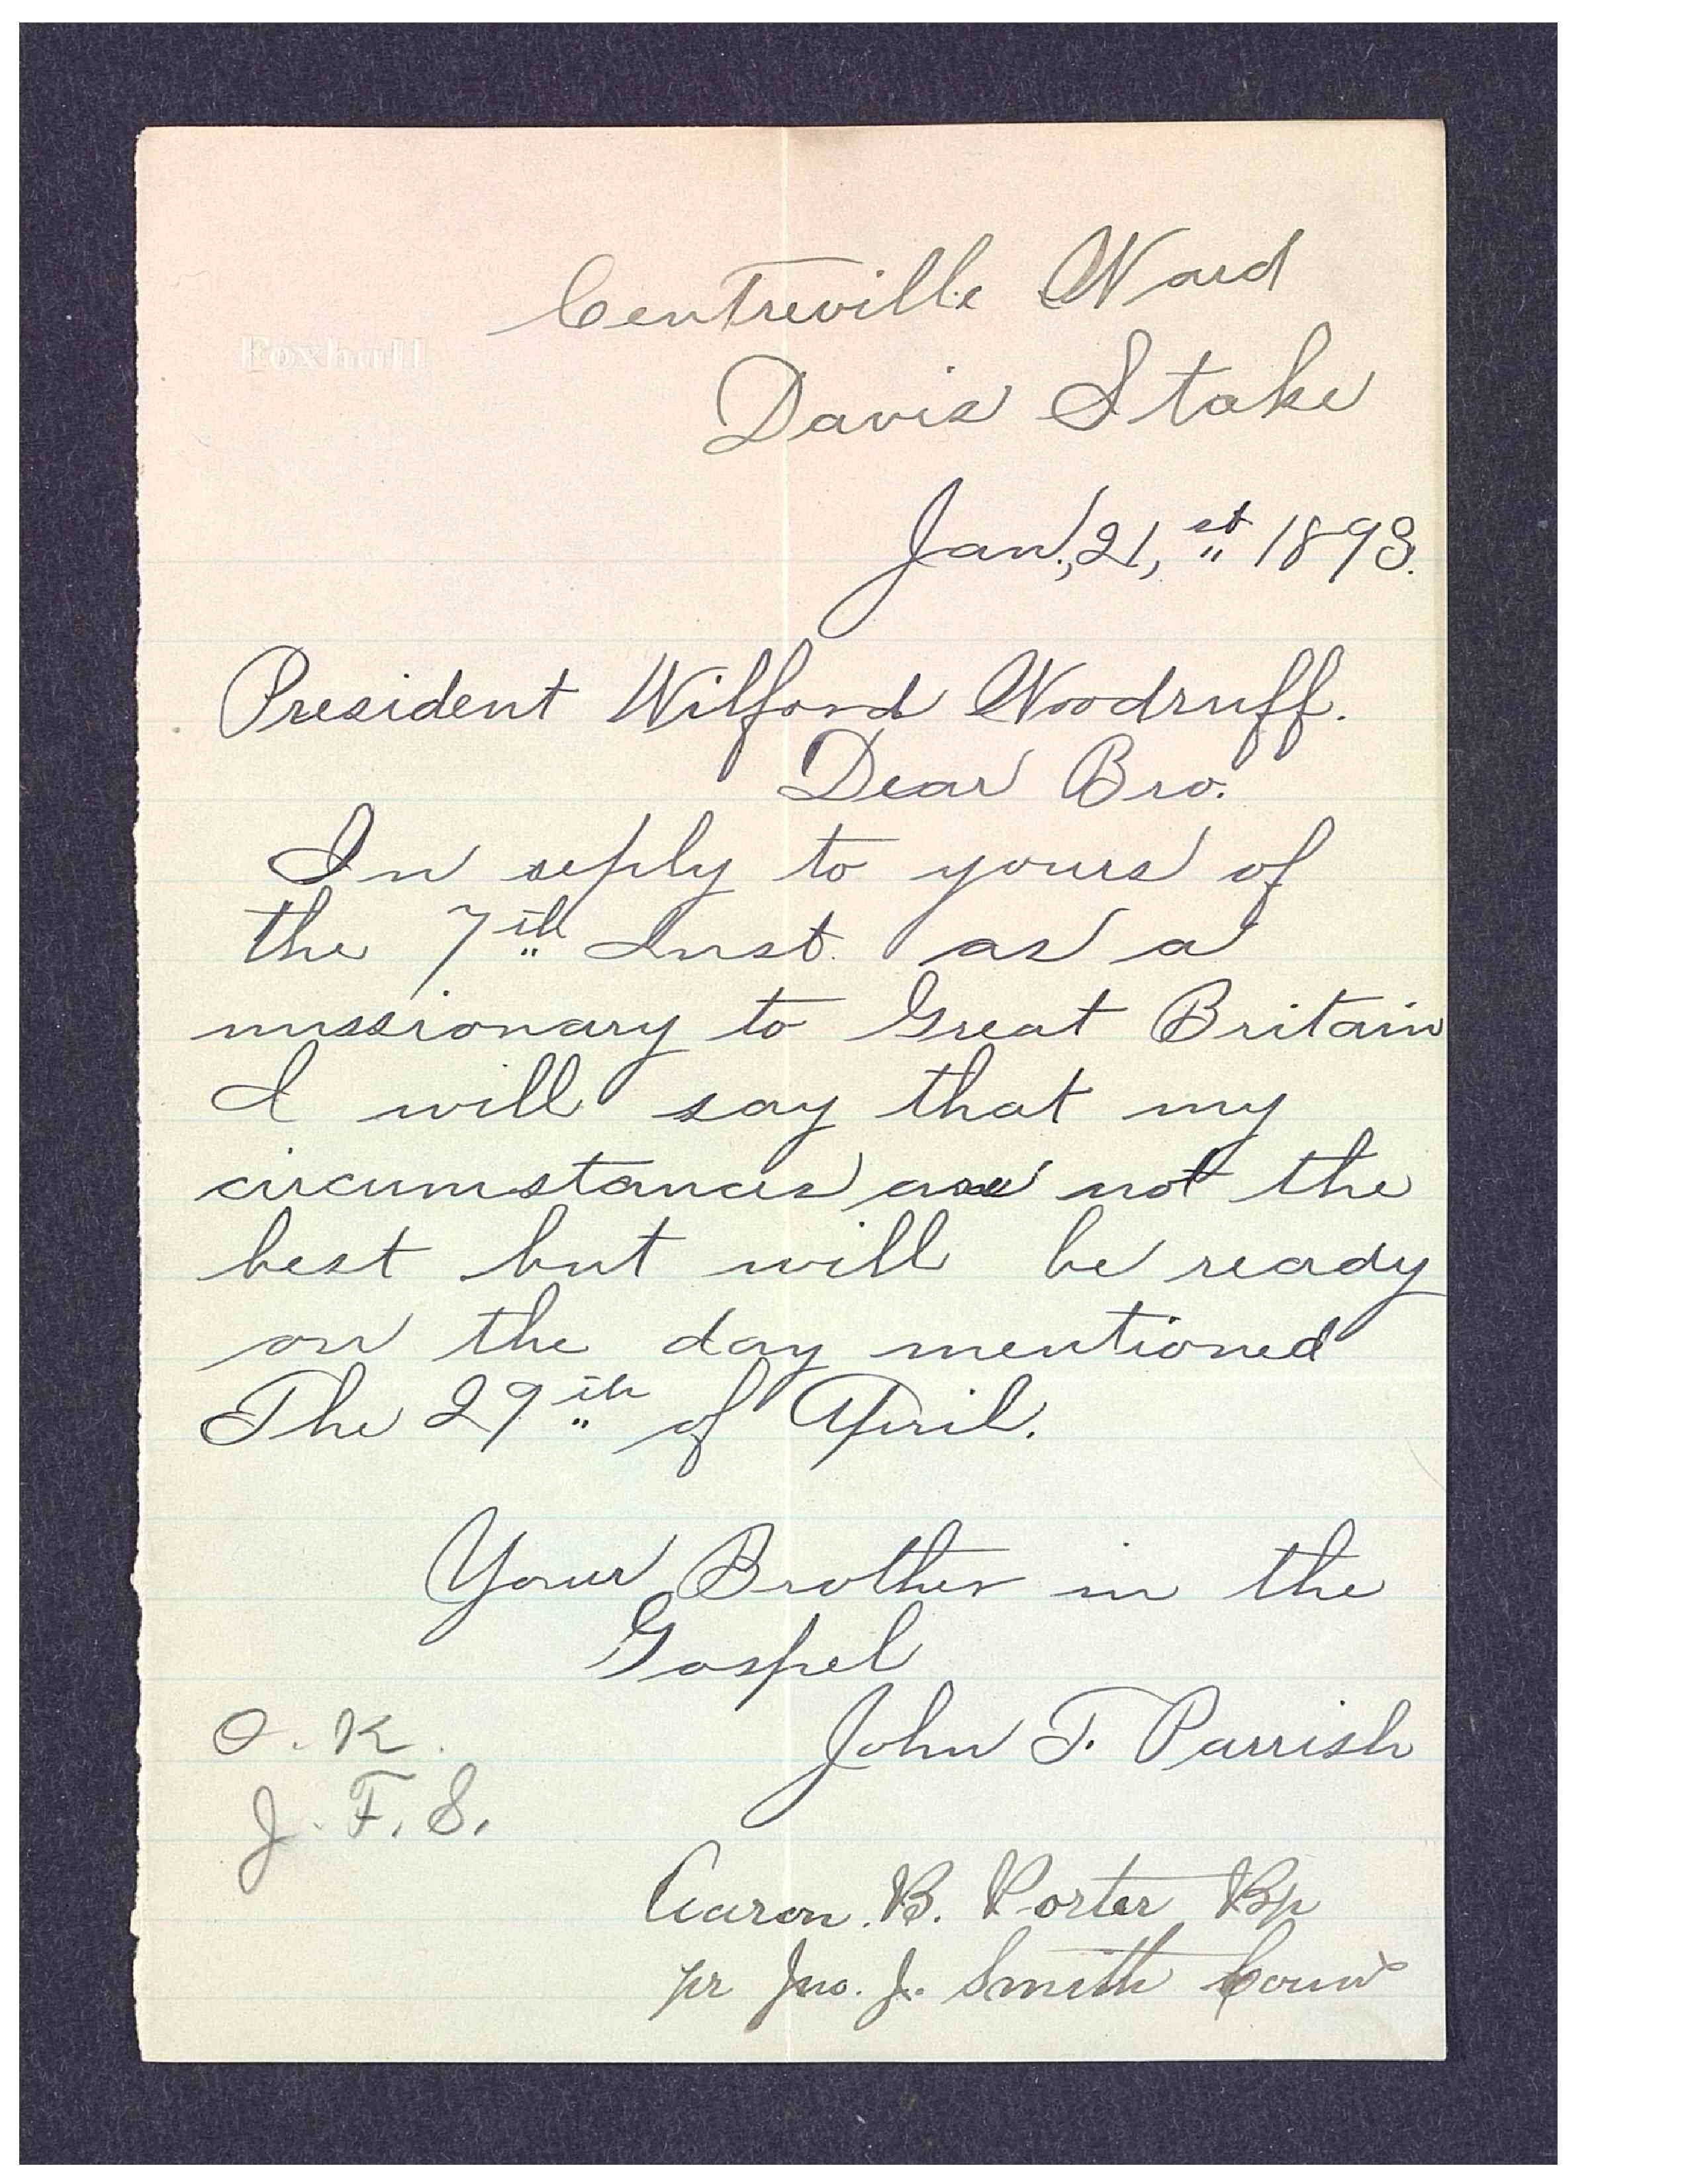 Centreville Ward
Foxhall
Davis Stake
Jan., 21, st 1893.
President Wilford Woodruff.
Dear Bro.
In reply to yours of
the 7th Inst. as a
missionary to Great Britain
I will say that my
circumstances are not the
best but will be ready
on the day mentioned
The 29th of April.
Your Brother in the
Gospel
John T. Parrish
O. K.
J. F. S.
Aaron. B. Porter Bp
pr Jno. J. Smith Couns